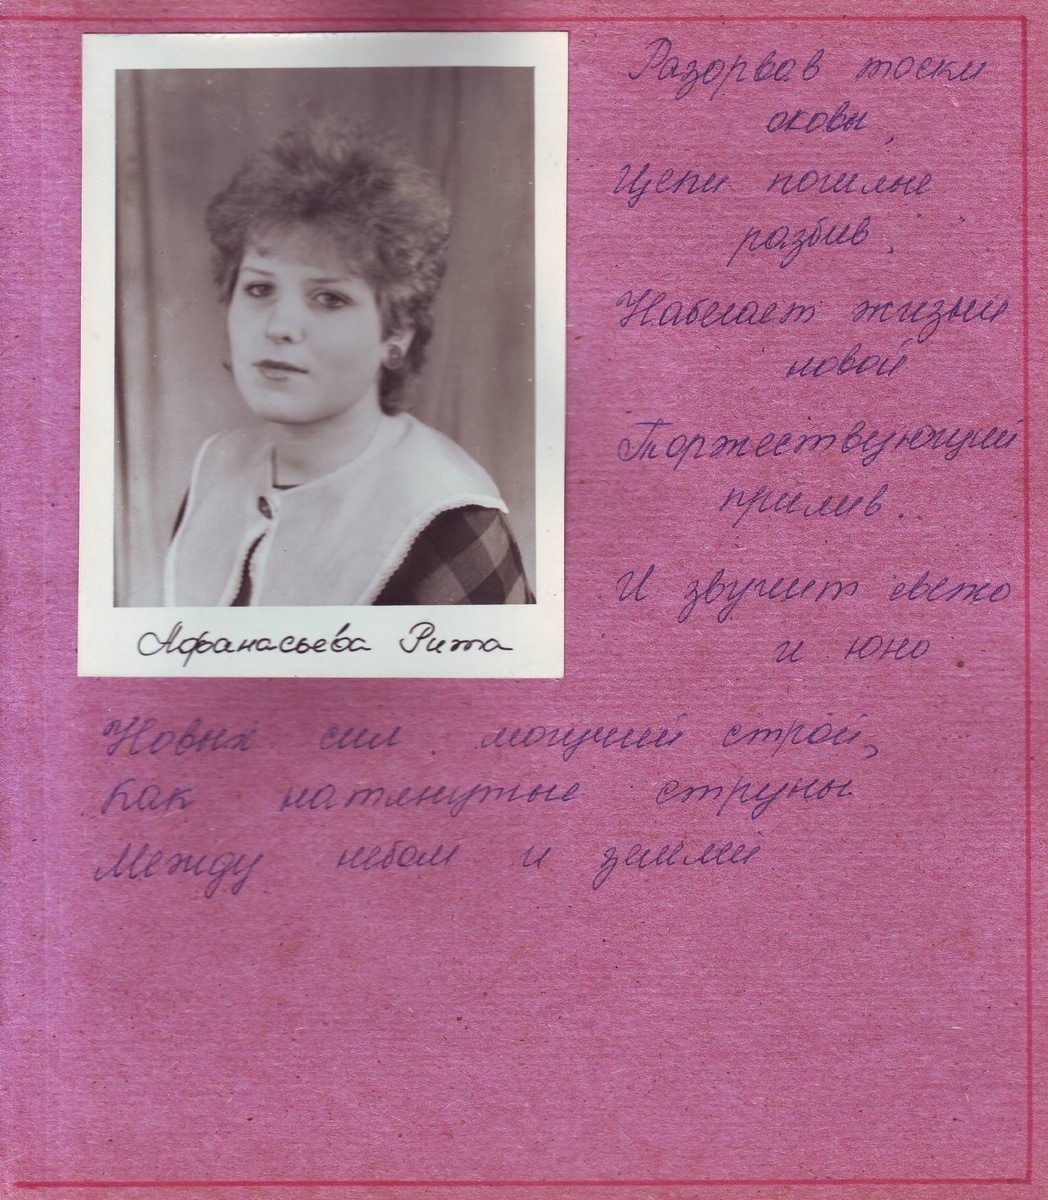 Афанасьева Рита
Разорвав тоски
оковы,
Цепи пошлые
разбив,
Набегает жизни
новой
Торжествующий
прилив.
И звучит свежо
и юно
Новых сил могучий строй,
Как натянутые струны
Между небом и землёй